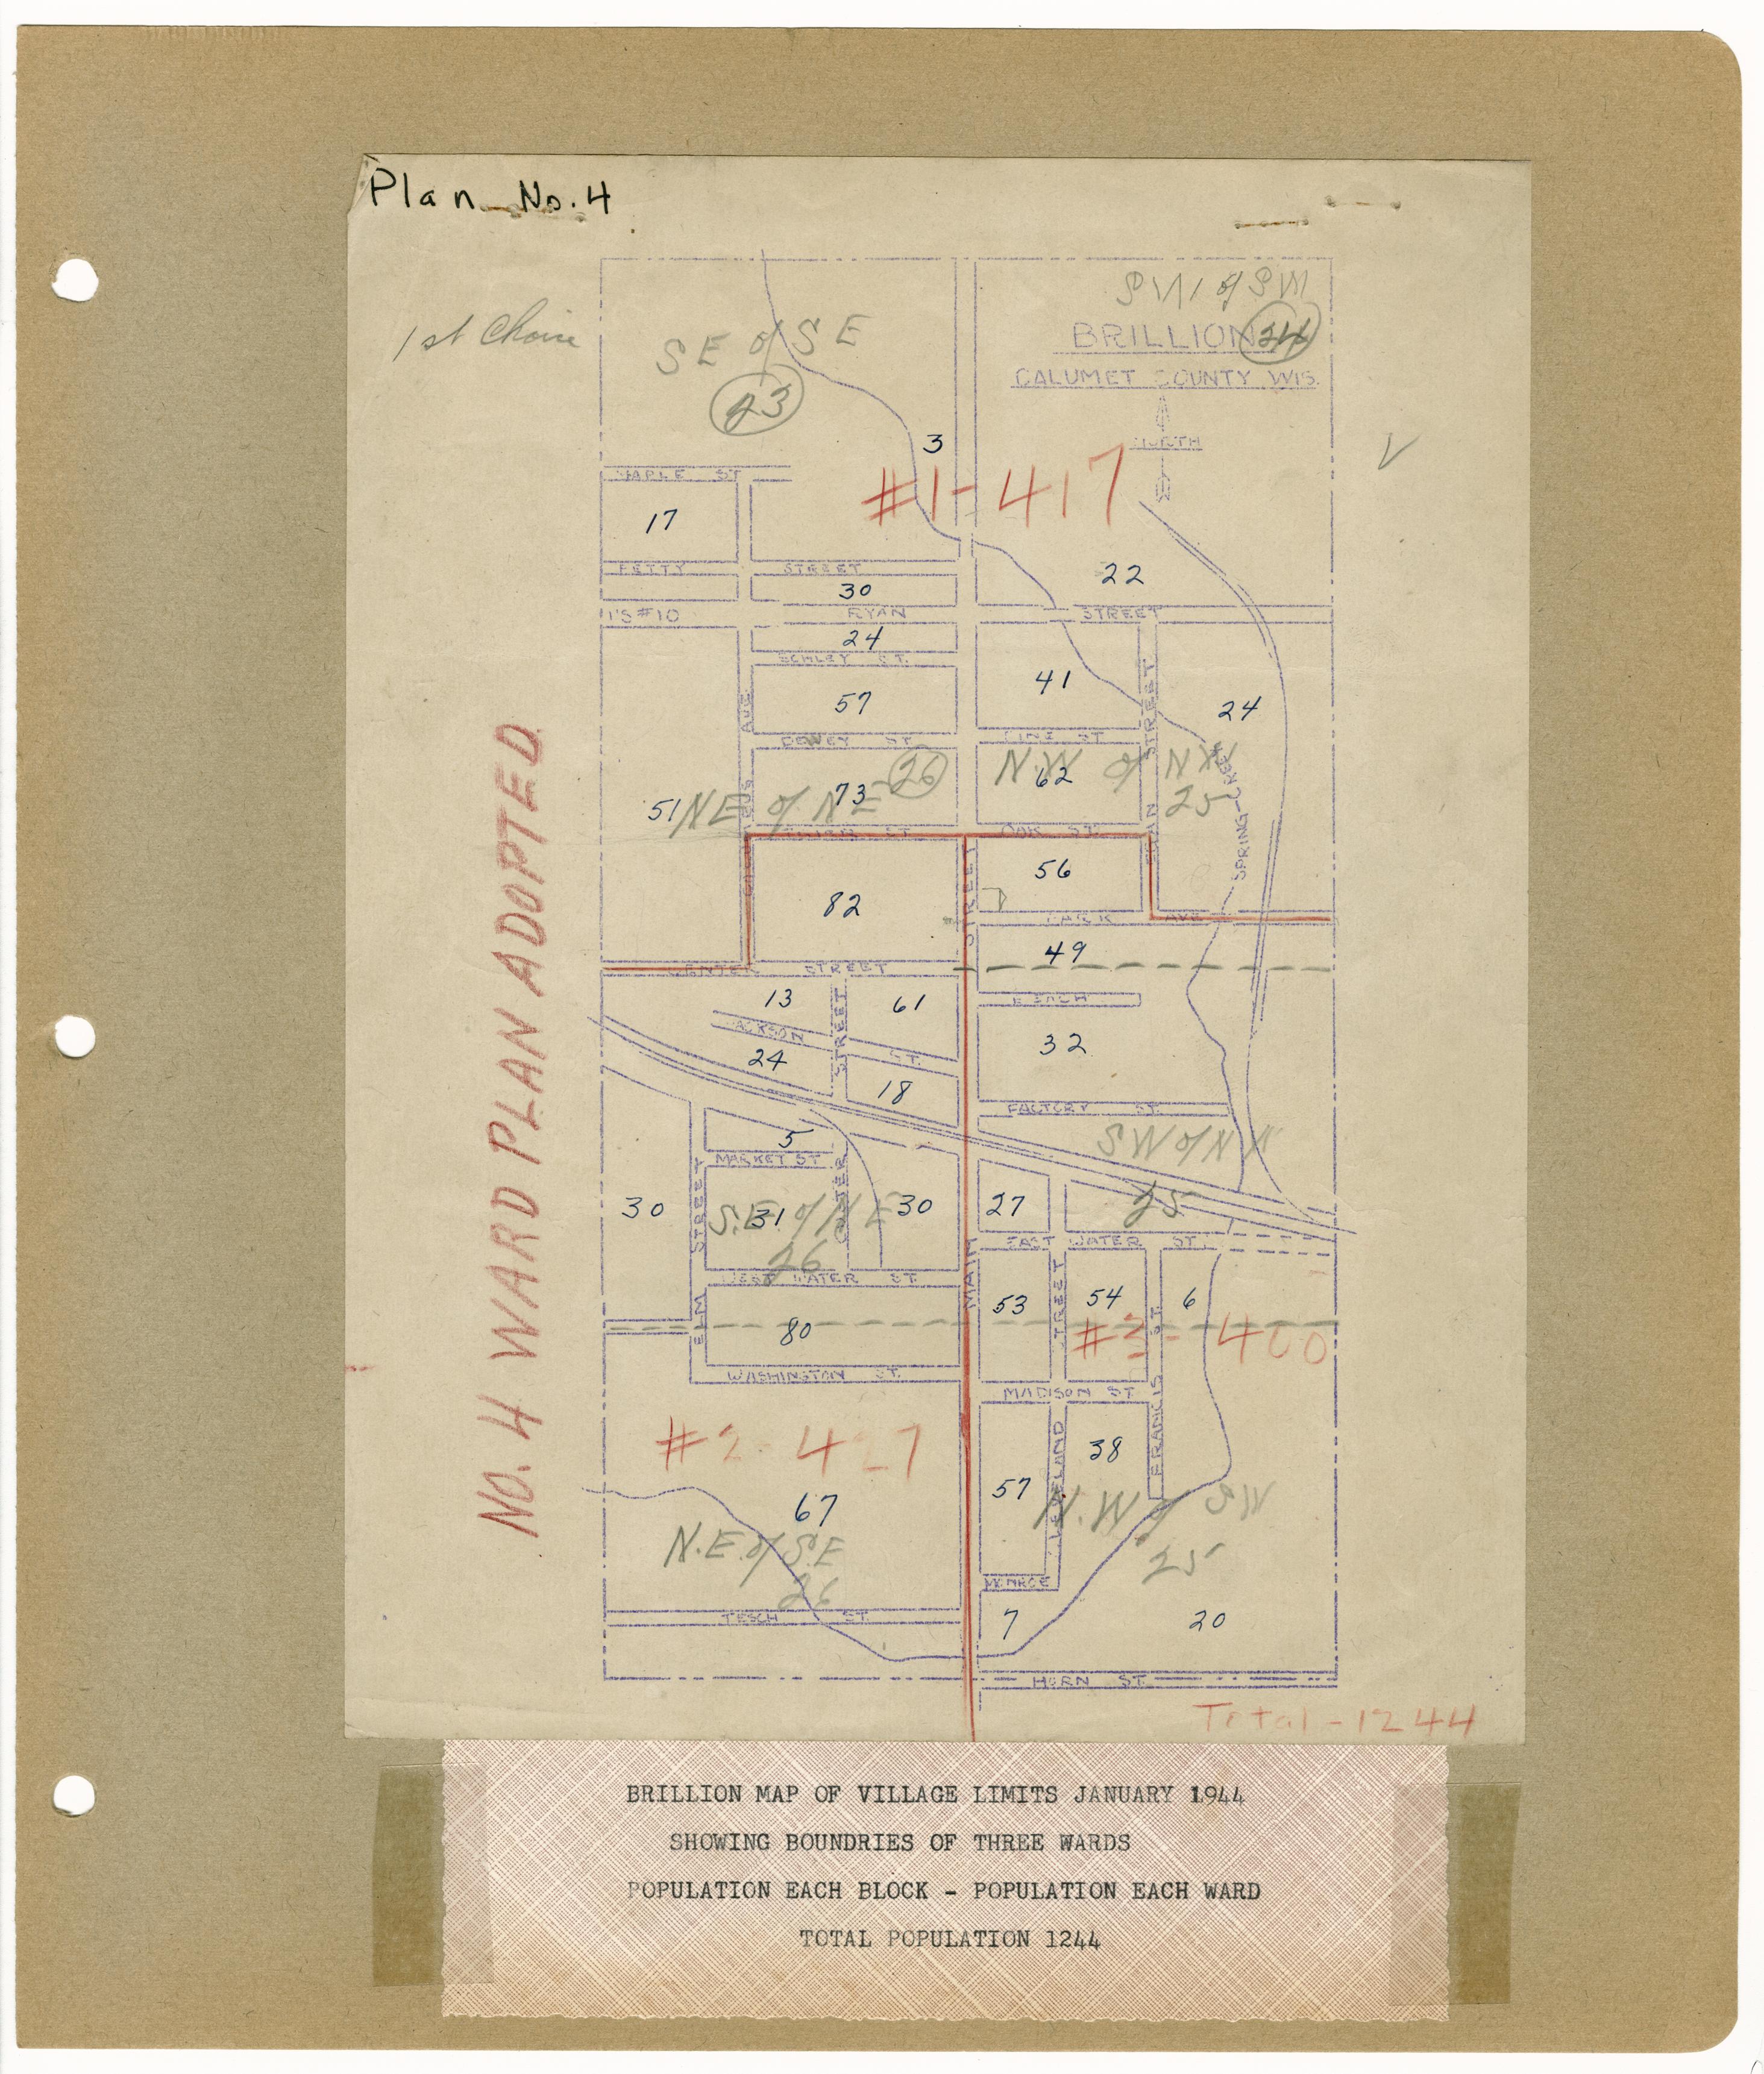 Plan No. 4
1st Choice
SW of SW
BRILLION 24
CALUMET COUNTY WIS.
NORTH
SE of SE
23
3
#1-417
MAPLE ST
17
22
STREET
30
RYAN
STREET
24
SCHLEY ST.
41
57
24
DEWEY ST.
PINE ST
26
N.W of NW
62
25
51
NE of NE
73
STREET
AVE
OAK ST.
SPRING-CREEK
56
82
PARK AVE
STREET
49
CENTER STREET
13
61
STREET
JACKSON
ST.
32
24
18
FACTORY ST.
5
MARKET ST
SW of NW
25
30
STREET
ELM
S.E of NE
31
26
30
27
EAST WATER ST.
WEST WATER ST.
MAIN
53
STREET
54
6
80
#3-400
WASHINGTON ST.
MADISON ST
FRANCIS ST.
#2-427
38
57
CLEVELAND
67
N.W of SW
25
N.E of S.E
26
MONROE
TESCH ST.
7
20
HORN ST.
Total-1244
NO. 4 WARD PLAN ADOPTED
BRILLION MAP OF VILLAGE LIMITS JANUARY 1944
SHOWING BOUNDRIES OF THREE WARDS
POPULATION EACH BLOCK - POPULATION EACH WARD
TOTAL POPULATION 1244